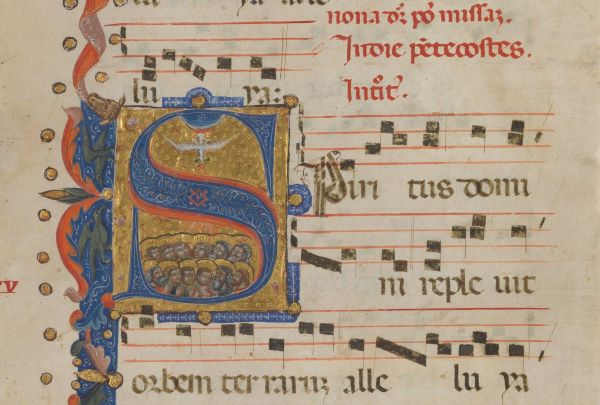 nona dr̃ po missaz.
In die pẽtecostes.
lu ya: Introit̃.
Spiri tus domi
ni reple uit
orbem terraruz alle lu ya